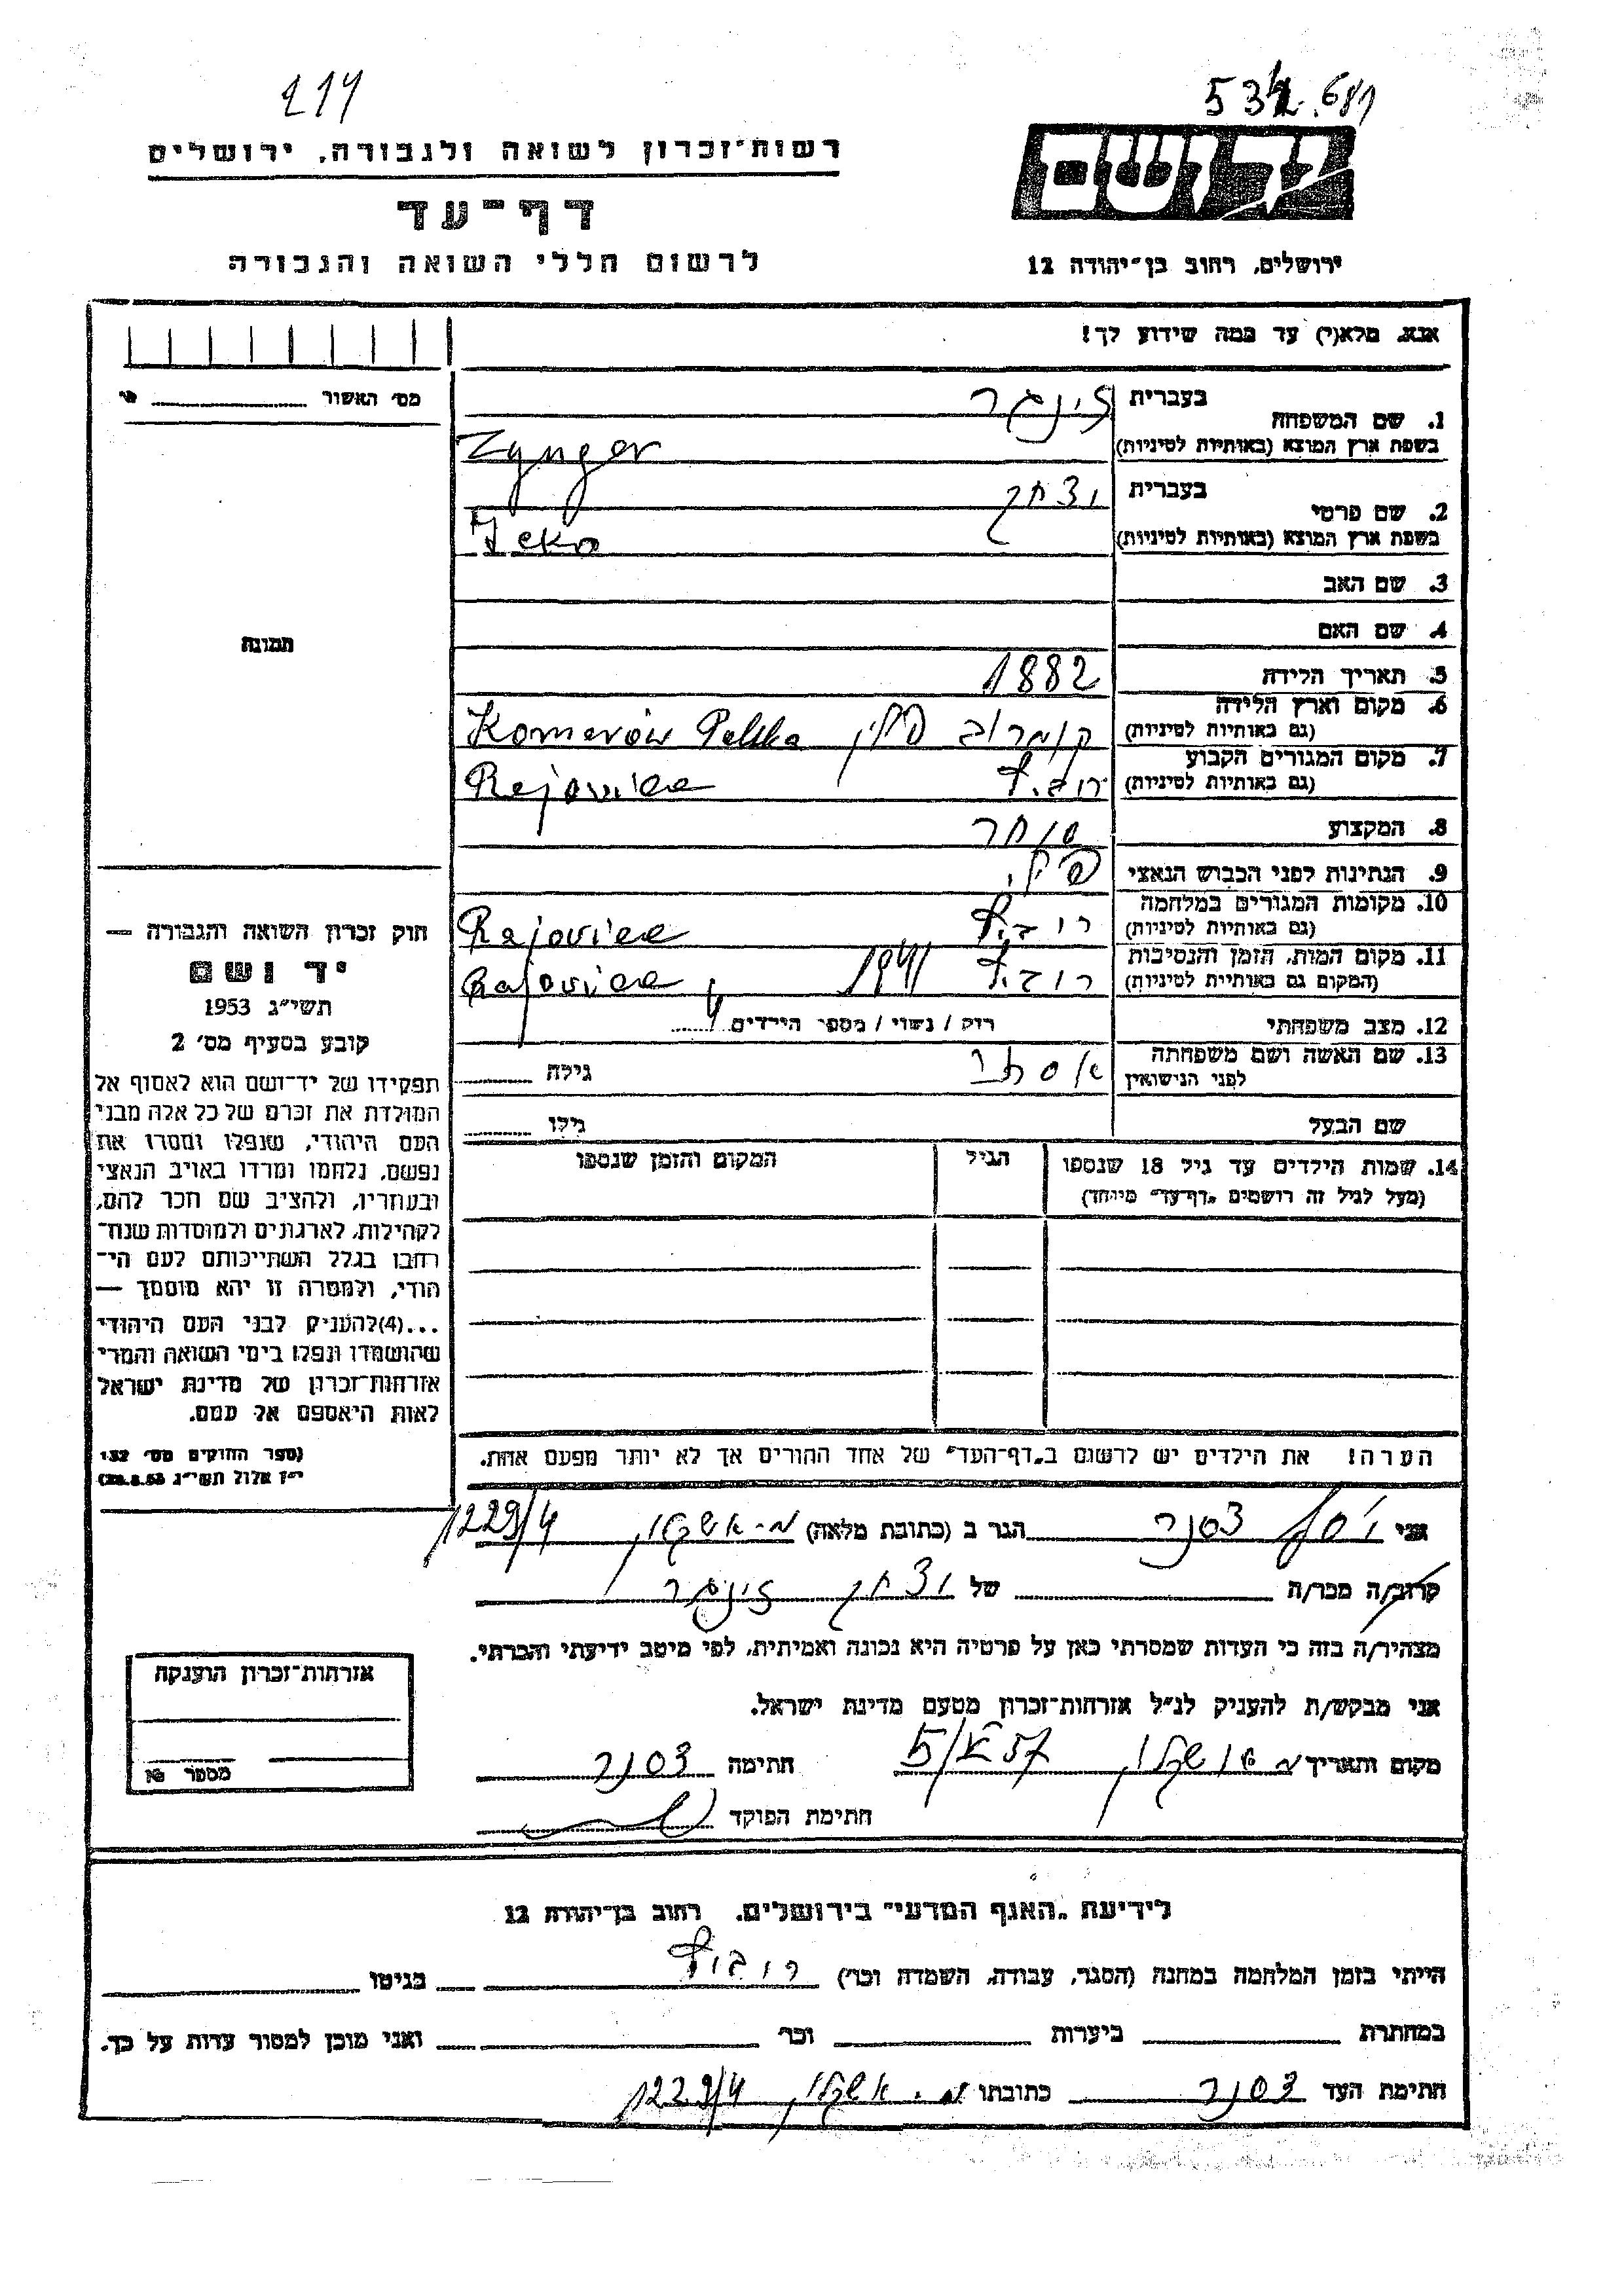 214
53 681
רשות־זכרון לשואה ולגבורה, ירושלים
יד ושם
דף־עד
לרשום חללי השואה והגבורה
ירושלים, רחוב בן־יהודה 12
אנא, מלא(י) עד כמה שידוע לך!
מס׳ האשור
1. שם המשפחה
בעברית זינגר
בשפת ארץ המוצא (באותיות לטיניות) Zynger
2. שם פרטי
בעברית יצחק
בשפת ארץ המוצא (באותיות לטיניות)
3. שם האב
4. שם האם
תמונה
5. תאריך הלידה 1882
6. מקום וארץ הלידה
(גם באותיות לטיניות) קומרוב פולין Komarów Polska
7. מקום המגורים הקבוע
(גם באותיות לטיניות) Rejowiec
8. המקצוע סוחר
9. הנתינות לפני הכבוש הנאצי פול.
10. מקומות המגורים במלחמה
(גם באותיות לטיניות) Rejowiec
11. מקום המות, הזמן והנסיבות
(המקום גם באותיות לטיניות) 1941 Rejowiec
12. מצב משפחתי רווק / נשוי / מספר הילדים 4
13. שם האשה ושם משפחתה
לפני הנישואין אסתר גילה
שם הבעל גילו
14. שמות הילדים עד גיל 18 שנספו
(מעל לגיל זה רושמים „דף־עד״ מיוחד)
הגיל
המקום והזמן שנספו
חוק זכרון השואה והגבורה —
יד ושם
תשי״ג 1953
קובע בסעיף מס׳ 2
תפקידו של יד־ושם הוא לאסוף אל
המולדת את זכרם של כל אלה מבני
העם היהודי, שנפלו ומסרו את
נפשם, נלחמו ומרדו באויב הנאצי
ובעוזריו, ולהציב שם וזכר להם,
לקהילות, לארגונים ולמוסדות שנח־
רבו בגלל השתייכותם לעם הי־
הודי, ולמטרה זו יהא מוסמך —
...(4)להעניק לבני העם היהודי
שהושמדו ונפלו בימי השואה והמרי
אזרחות־זכרון של מדינת ישראל
לאות היאספם אל עמם.
(ספר החוקים מס׳ 132
י״ז אלול תשי״ג 28.8.53)
הערה! את הילדים יש לרשום ב„דף־העד״ של אחד ההורים אך לא יותר מפעם אחת.
אני יוסף צסנר הגר ב (כתובת מלאה) מ. אשקלון 1229/4
קרוב/ה מכר/ה של יצחק זינגר
מצהיר/ה בזה כי העדות שמסרתי כאן על פרטיה היא נכונה ואמיתית, לפי מיטב ידיעתי והכרתי.
אני מבקש/ת להעניק לנ״ל אזרחות־זכרון מטעם מדינת ישראל.
מקום ותאריך מ אשקלון חתימה צסנר
חתימת הפוקד
אזרחות־זכרון הוענקה
מספר
לידיעת „האגף המדעי״ בירושלים, רחוב בן־יהודה 12
הייתי בזמן המלחמה במחנה (הסגר, עבודה, השמדה וכו׳) בגיטו
במחתרת ביערות וכו׳ ואני מוכן למסור עדות על כך.
חתימת העד צסנר כתובתו מ. אשקלון 1229/4